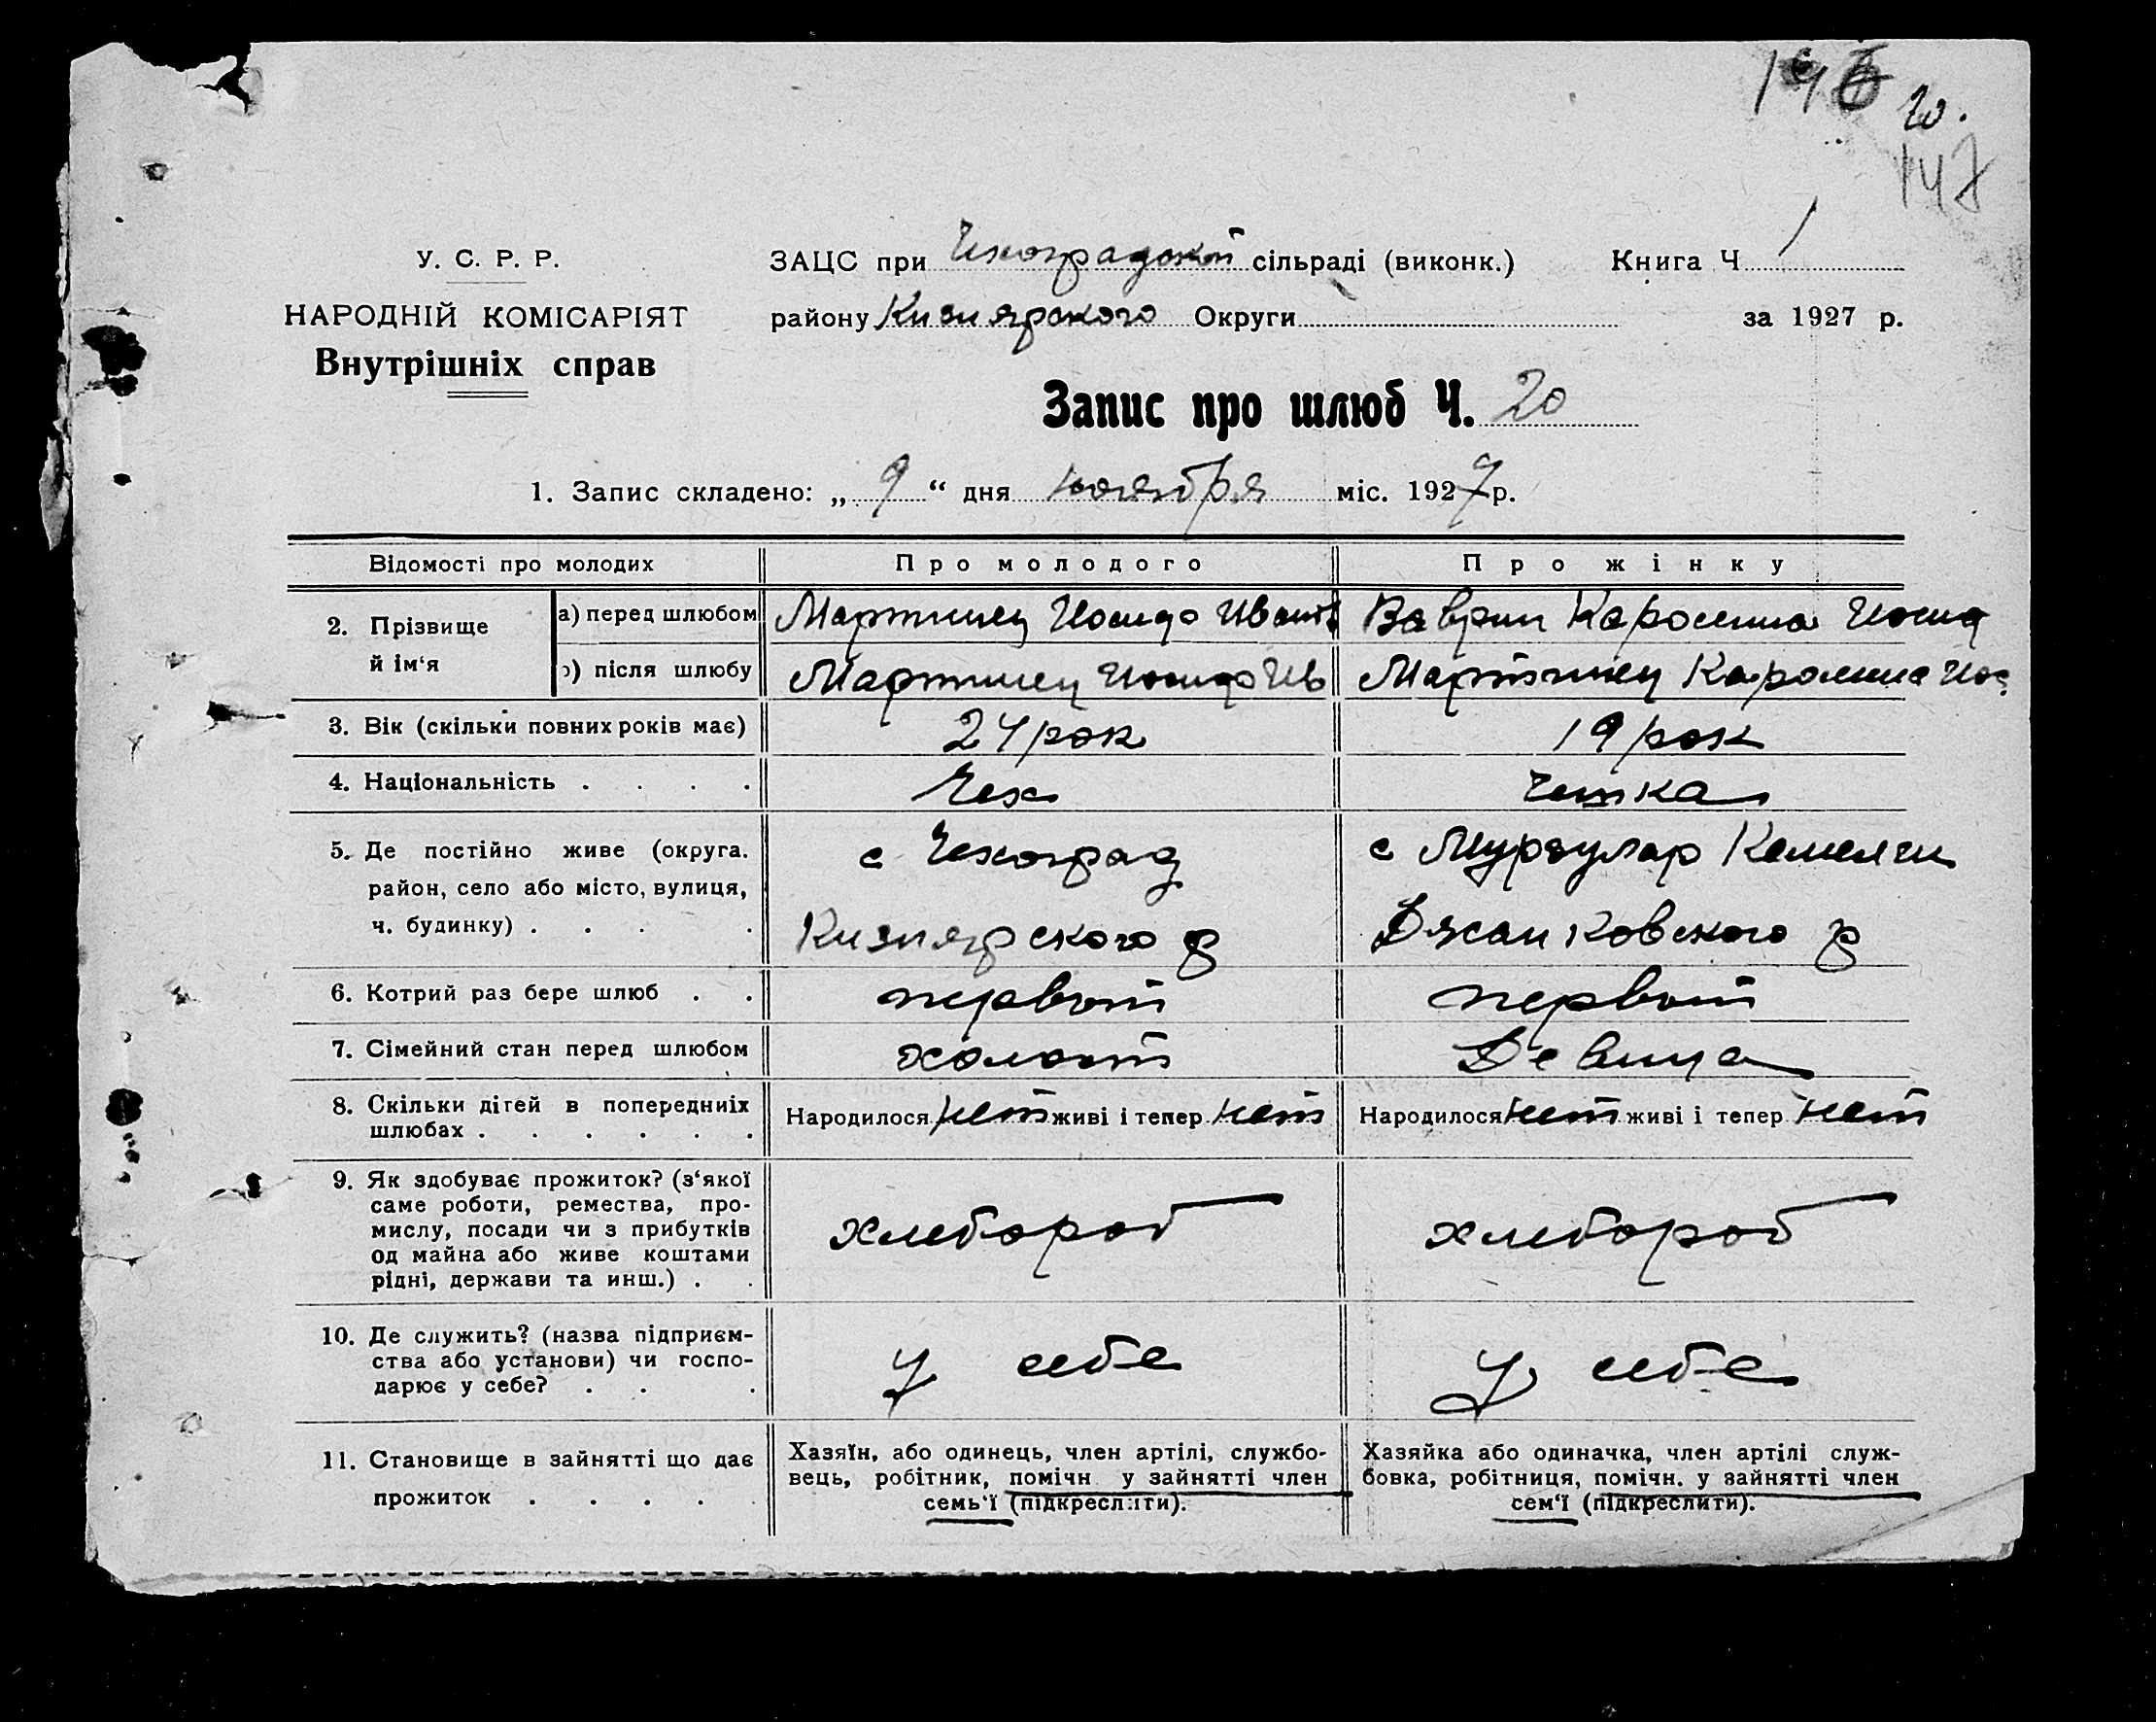 20.
147
У. С. Р. Р.
НАРОДНІЙ КОМІСАРІЯТ
Внутрішніх справ
ЗАЦС при Чехоградской сільраді (виконк.) Книга Ч. 1
району Кизиярского Округи за 1927 р.
Запис про шлюб Ч. 20
1. Запис складено: „ 9 “ дня ноября міс. 1927 р.
Відомості про молодих Про молодого Про жінку
2. Прізвище й ім‘я
а) перед шлюбом Мартинец Иосиф Иван Ваврин Каролина Иосиф
б) після шлюбу Мартинец Иосиф Ив Мартинец Каролина Иос.
3. Вік (скільки повних років має) 24 рок 19 рок
4. Національність . . . . Чех Чешка
5. Де постійно живе (округа. с Чехоград с Мурзулар Кемелчи
район, село або місто, вулиця,
ч. будинку) . . . . Кизиярского р Джанковского р
6. Котрий раз бере шлюб . . первый первый
7. Сімейний стан перед шлюбом холост Девица
8. Скільки дітей в попередниіх Народилося нет живі і тепер нет Народилося нет живі і тепер нет
шлюбах . . . . . .
9. Як здобуває прожиток? (з‘якої
саме роботи, ремества, про-
мислу, посади чи з прибутків хлебороб хлебороб
од майна або живе коштами
рідні, держави та инш.) . .
10. Де служить? (назва підприєм-
ства або установи) чи госпо- у себе у себе
дарює у себе? . . .
11. Становище в зайнятті що дає
прожиток . . . . .
Хазяїн, або одинець, член артілі, службо-
вець, робітник, помічн у зайнятті член
семь‘ї (підкреслити).
Хазяйка або одиначка, член артілі служ-
бовка, робітниця, помічн. у зайнятті член
сем‘ї (підкреслити).